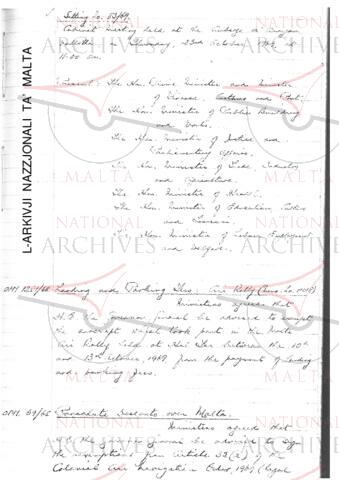 Sitting No. 53/69
Cabinet meeting held at the Auberge de Aragon
Valletta Thursday, 23rd October 1969 at
Present: The Hon. Prime Minister and Minister
of Finance, Customs and
The Hon. Minister of Public Building
and Works.
The Hon. Minister of Justice and
Parliamentary Affairs.
The Hon. Minister of Trade, Industry
and Agriculture.
The Hon. Minister of Health.
The Hon. Minister of Education, Culture
and Tourism.
The Hon. Minister of Labour, Employment
and Welfare.
L-ARKIVJI NAZZJONALI TA' MALTA
NATIONAL ARCHIVES MALTA
OPM Landing and Parking Fees: Air Rally
Ministers agreed that
H.E. the Governor General be advised to exempt
the aircraft which took part in the Malta
Air Rally held at Hal Far between the 10th
and 13th October, 1969 from the payment of landing
and parking fees.
OPM. Parachute Descents over Malta.
Ministers agreed that
H.E. the Governor General be advised to sign
the exemptions from Article 33(2) of the
Colonial Air Navigation Order, (Legal